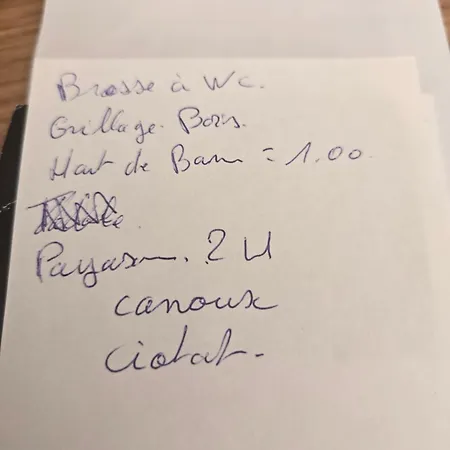 Brosse à WC.
Grillage Bois.
Haut de Barr = 1.00.
Payasm. 2 U
canoux
ciotat.